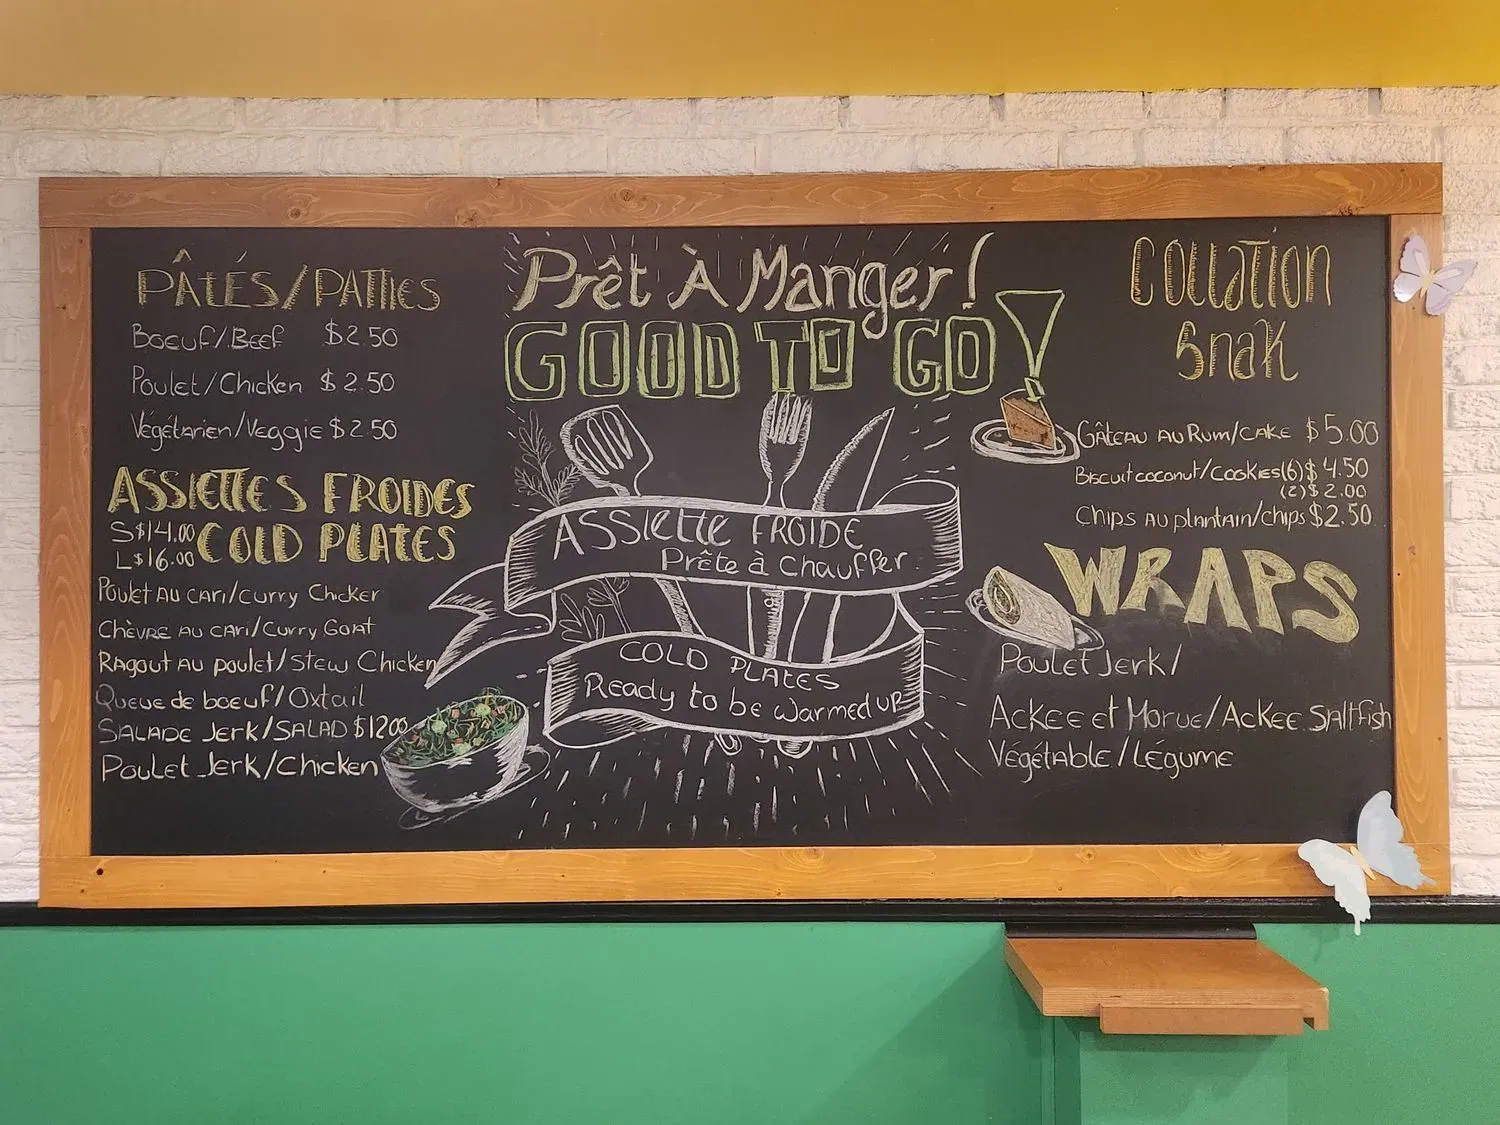 PÂTÉS/PATTIES
Boeuf/Beef $2.50
Poulet/Chicken $2.50
Végétarien/Veggie $2.50
ASSIETTES FROIDES
S $14.00 COLD PLATES
L $16.00
Poulet au cari/curry Chicken
Chèvre au cari/Curry Goat
Ragout au poulet/Stew Chicken
Queue de boeuf/Oxtail
SALADE Jerk/SALAD $12.00
Poulet Jerk/Chicken
Prêt À Manger!
GOOD TO GO!
ASSIETTE FROIDE
Prête à Chauffer
COLD PLATES
Ready to be warmed up
COLLATION
Snak
Gâteau au Rum/cake $5.00
Biscuit coconut/Cookies(6)$4.50
(2)$2.00
Chips au plantain/chips $2.50
WRAPS
Poulet Jerk/
Ackee et Morue/Ackee Saltfish
Végétable/Légume